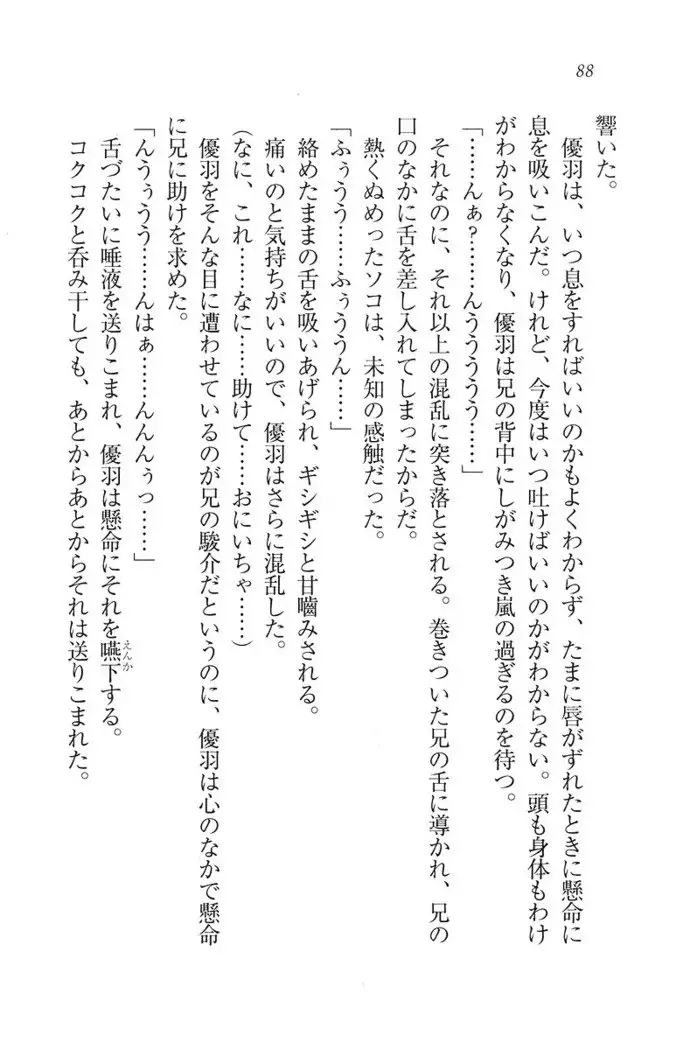 88
響いた。
　優羽は、いつ息をすればいいのかもよくわからず、たまに唇がずれたときに懸命に
息を吸いこんだ。けれど、今度はいつ吐けばいいのかがわからない。頭も身体もわけ
がわからなくなり、優羽は兄の背中にしがみつき嵐の過ぎるのを待つ。
「……んぁ?……んうううう……」
　それなのに、それ以上の混乱に突き落とされる。巻きついた兄の舌に導かれ、兄の
口のなかに舌を差し入れてしまったからだ。
　熱くぬめったソコは、未知の感触だった。
「ふぅうう……ふぅううん……」
　絡めたままの舌を吸いあげられ、ギシギシと甘嚙みされる。
　痛いのと気持ちがいいので、優羽はさらに混乱した。
（なに、これ……なに……助けて……おにいちゃ……）
　優羽をそんな目に遭わせているのが兄の駿介だというのに、優羽は心のなかで懸命
に兄に助けを求めた。
「んうぅうう……んはぁ……んんんぅっ……」
　舌づたいに唾液を送りこまれ、優羽は懸命にそれを嚥下する。
えんか
　コクコクと呑み干しても、あとからあとからそれは送りこまれた。